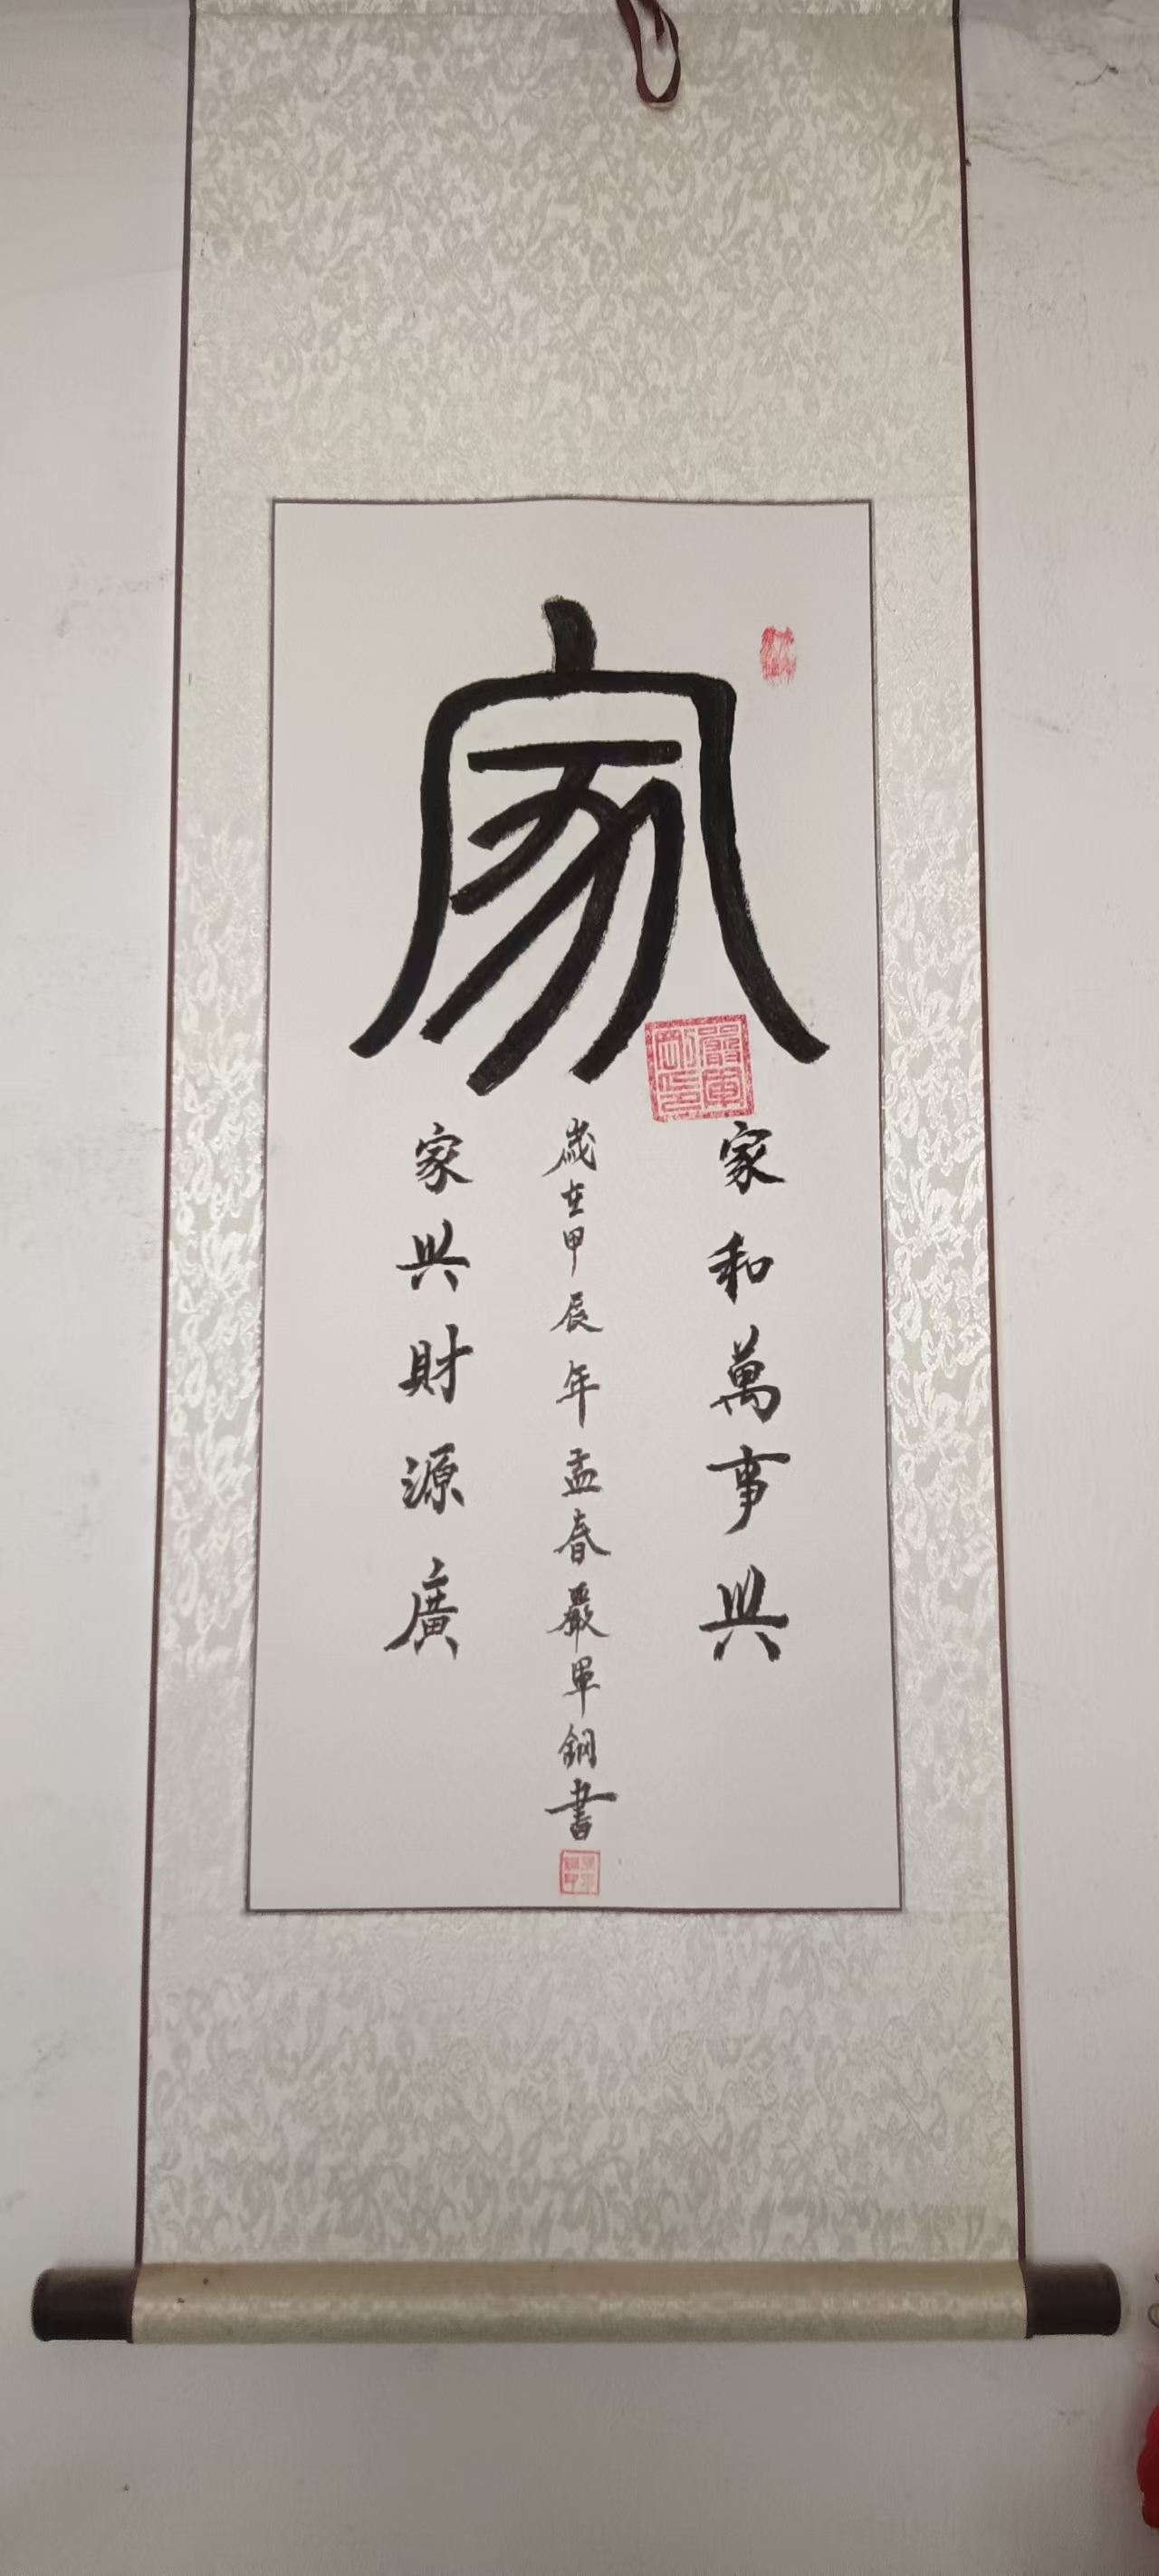 家
家和萬事興
家興財源廣
歲在甲辰年孟春嚴軍鋼書
嚴軍剛印